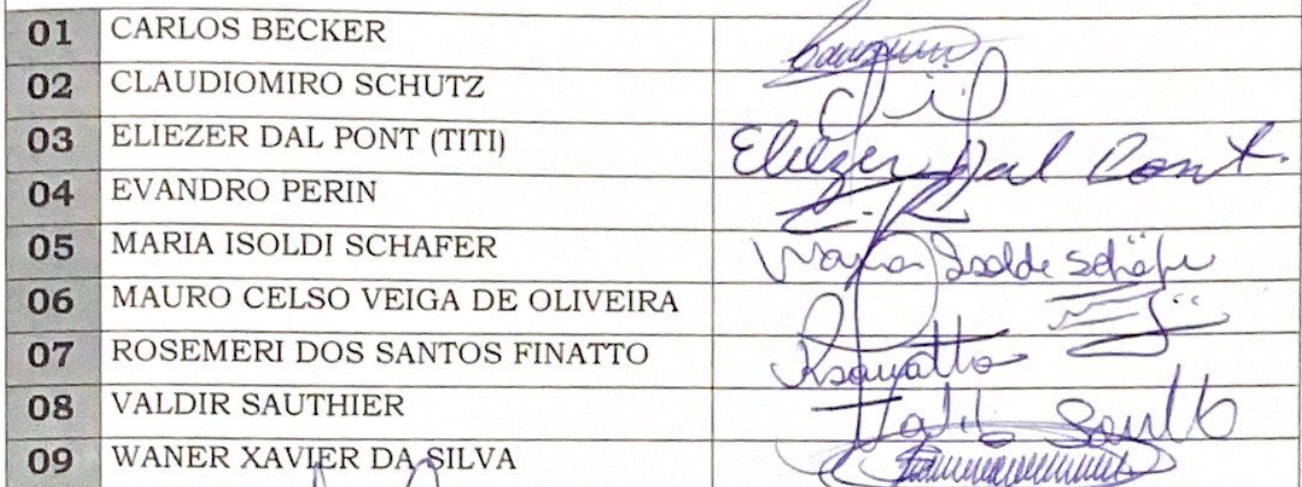 01 CARLOS BECKER
02 CLAUDIOMIRO SCHUTZ
03 ELIEZER DAL PONT (TITI) Eliezer Dal Pont.
04 EVANDRO PERIN
05 MARIA ISOLDI SCHAFER Maria Isolde Schäfer
06 MAURO CELSO VEIGA DE OLIVEIRA
07 ROSEMERI DOS SANTOS FINATTO
08 VALDIR SAUTHIER
09 WANER XAVIER DA SILVA